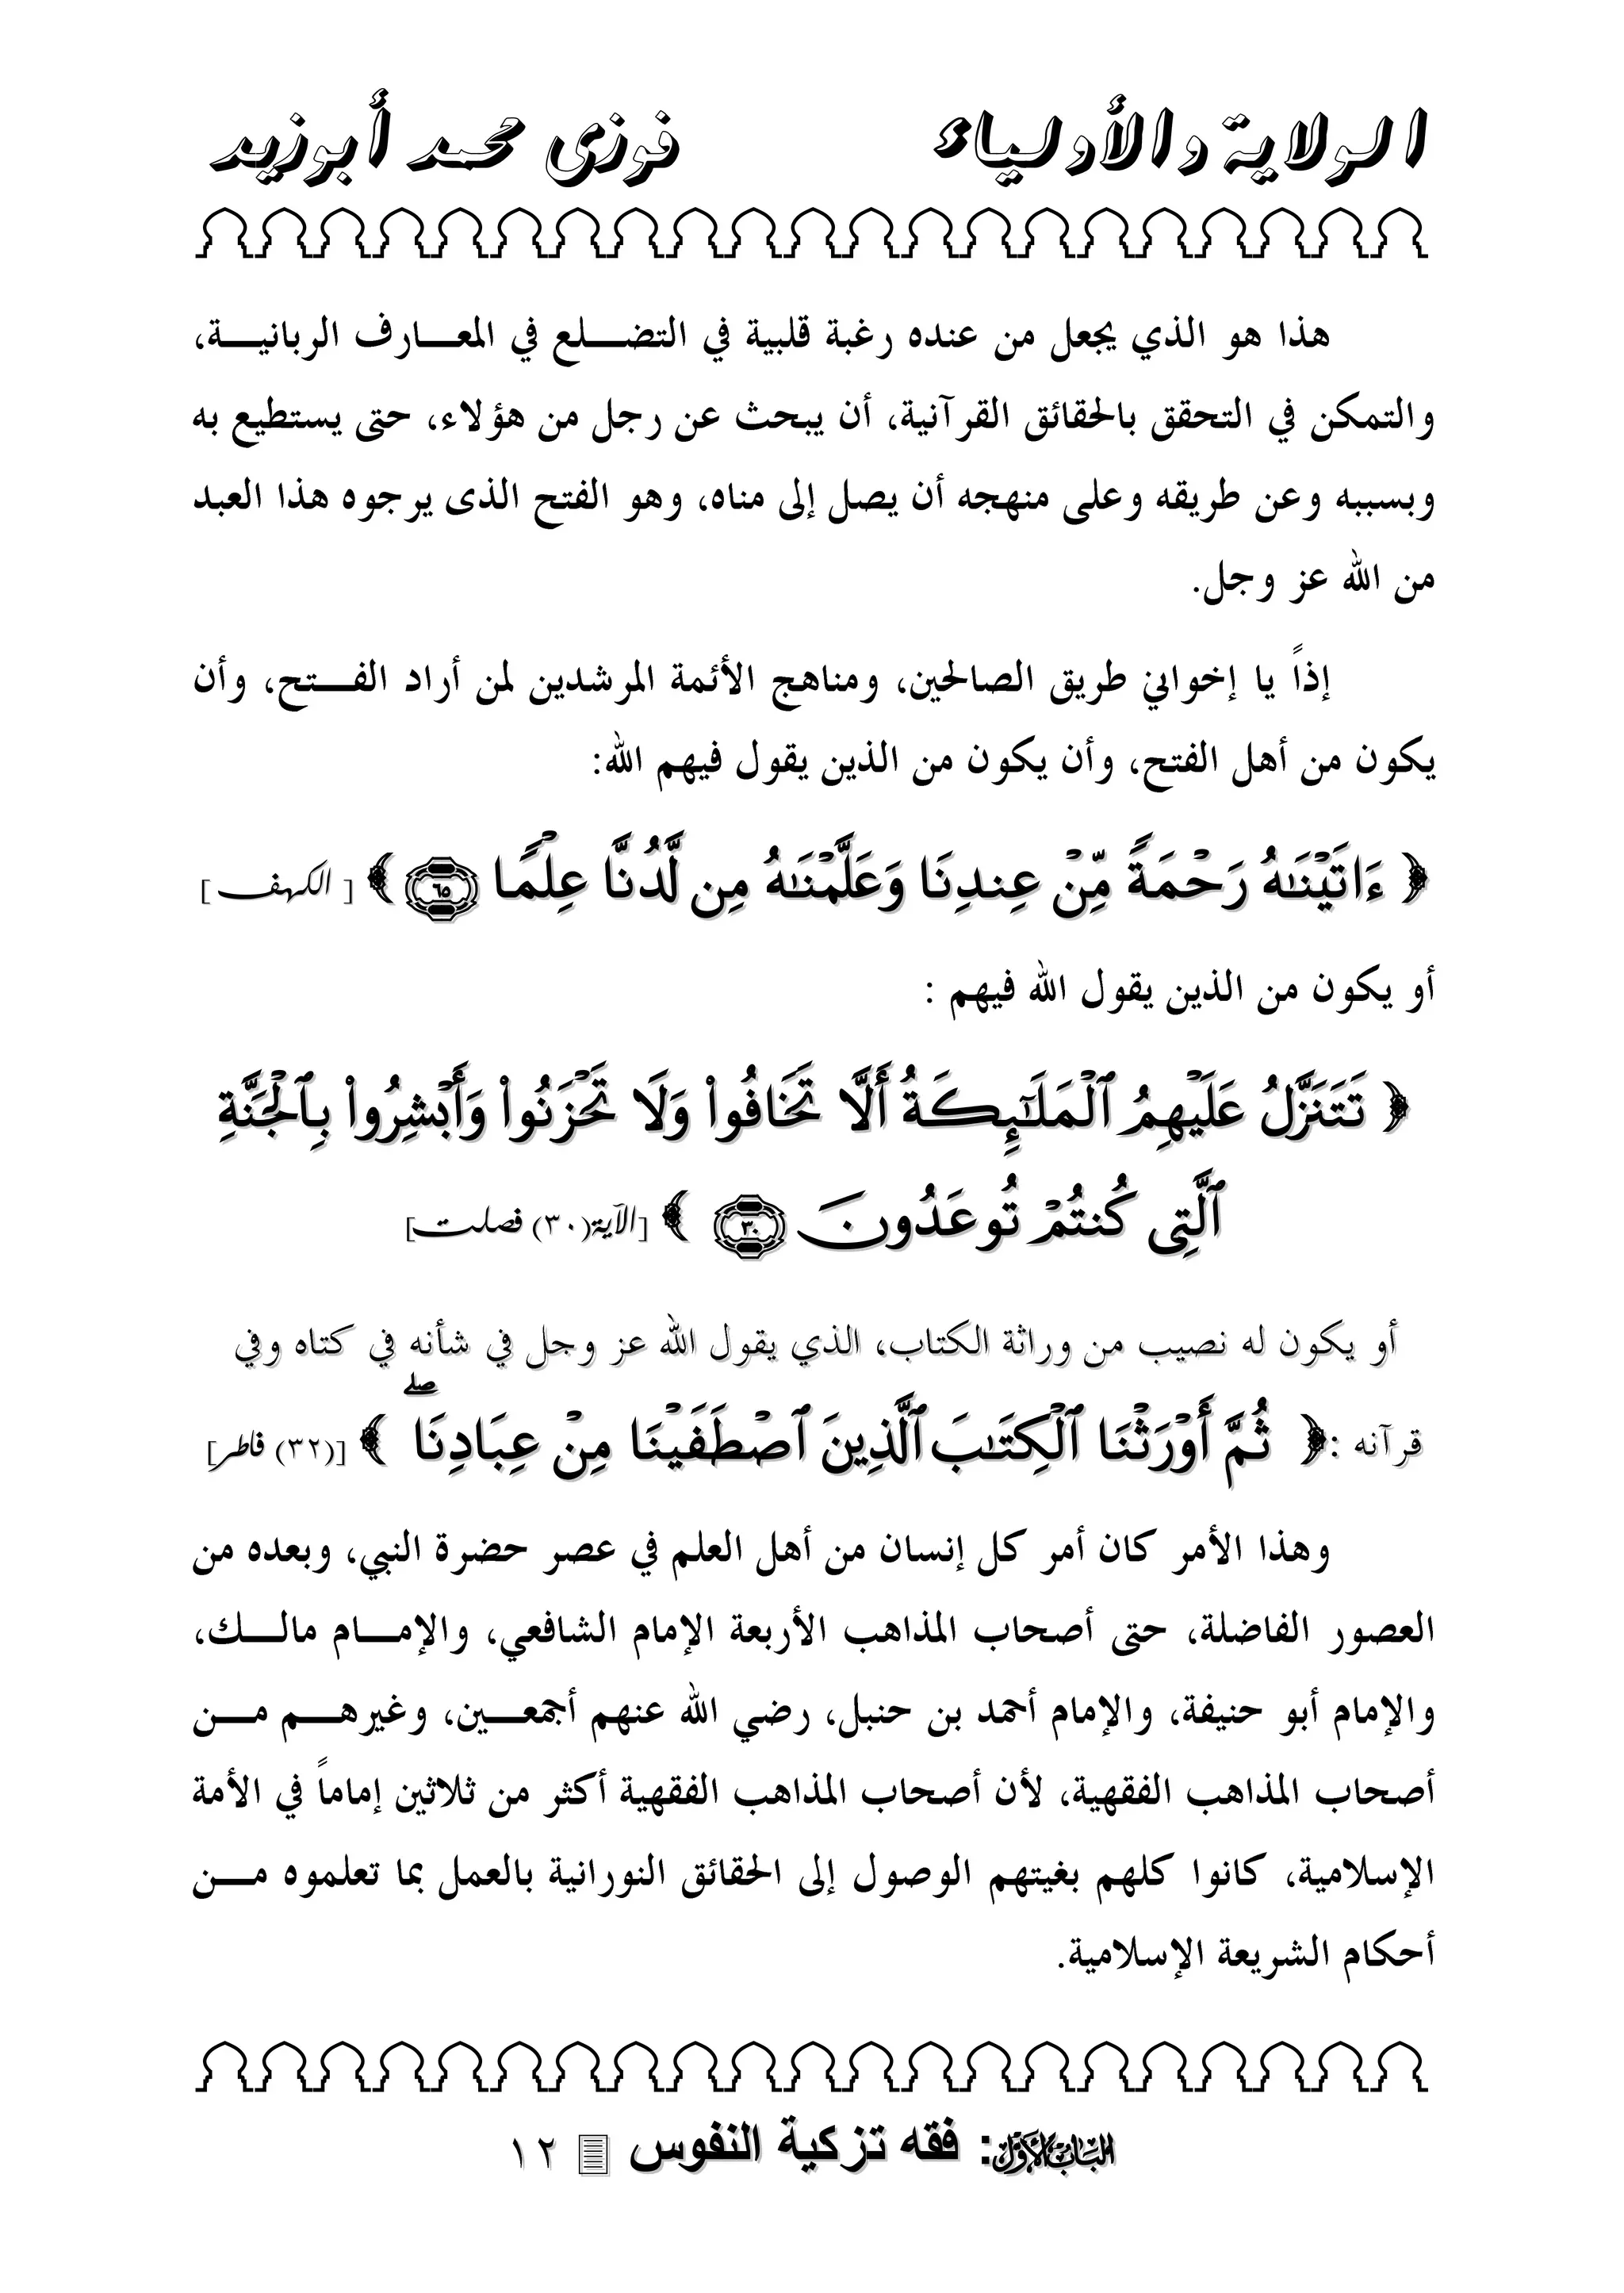 الولاية والأولياء فوزى محمد أبوزيد
هذا هو الذي يجعل من عنده رغبة قلبية في التضلع في المعارف الربانية،
والتمكن في التحقق بالحقائق القرآنية، أن يبحث عن رجل من هؤلاء، حتى يستطيع به
وبسببه وعن طريقه وعلى منهجه أن يصل إلى مناه، وهو الفتح الذى يرجوه هذا العبد
من الله عز وجل.
إذاً يا إخواني طريق الصالحين، ومناهج الأئمة المرشدين لمن أراد الفتح، وأن
يكون من أهل الفتح، وأن يكون من الذين يقول فيهم الله:
﴿ ءَاتَيْنَٰهُ رَحْمَةً مِّنْ عِندِنَا وَعَلَّمْنَٰهُ مِن لَّدُنَّا عِلْمًا ٦٥ ﴾ [ الكهف ]
أو يكون من الذين يقول الله فيهم :
﴿ تَتَنَزَّلُ عَلَيْهِمُ ٱلْمَلَٰٓئِكَةُ أَلَّا تَخَافُوا۟ وَلَا تَحْزَنُوا۟ وَأَبْشِرُوا۟ بِٱلْجَنَّةِ
ٱلَّتِى كُنتُمْ تُوعَدُونَ ٣٠ ﴾ [الآية(٣٠) فصلت]
أو يكون له نصيب من وراثة الكتاب، الذي يقول الله عز وجل في شأنه في كتاه وفي
قرآنه :﴿ ثُمَّ أَوْرَثْنَا ٱلْكِتَٰبَ ٱلَّذِينَ ٱصْطَفَيْنَا مِنْ عِبَادِنَا ۖ ﴾ [(٣٢) فاطر]
وهذا الأمر كان أمر كل إنسان من أهل العلم في عصر حضرة النبي، وبعده من
العصور الفاضلة، حتى أصحاب المذاهب الأربعة الإمام الشافعي، والإمام مالك،
والإمام أبو حنيفة، والإمام أحمد بن حنبل، رضي الله عنهم أجمعين، وغيرهم من
أصحاب المذاهب الفقهية، لأن أصحاب المذاهب الفقهية أكثر من ثلاثين إماماً في الأمة
الإسلامية، كانوا كلهم بغيتهم الوصول إلى الحقائق النورانية بالعمل بما تعلموه من
أحكام الشريعة الإسلامية.
الباب الأول: فقه تزكية النفوس ١٢